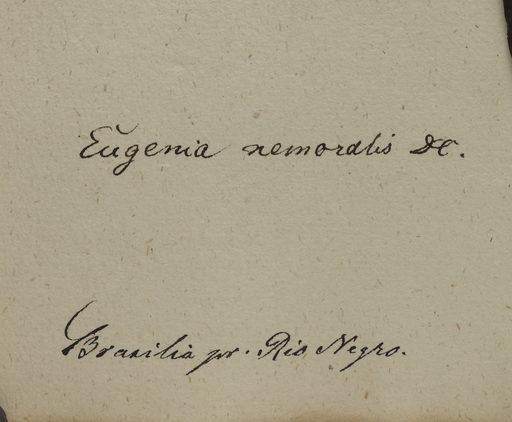 Eugenia nemoralis DC.
Brasilia pr. Rio Negro.